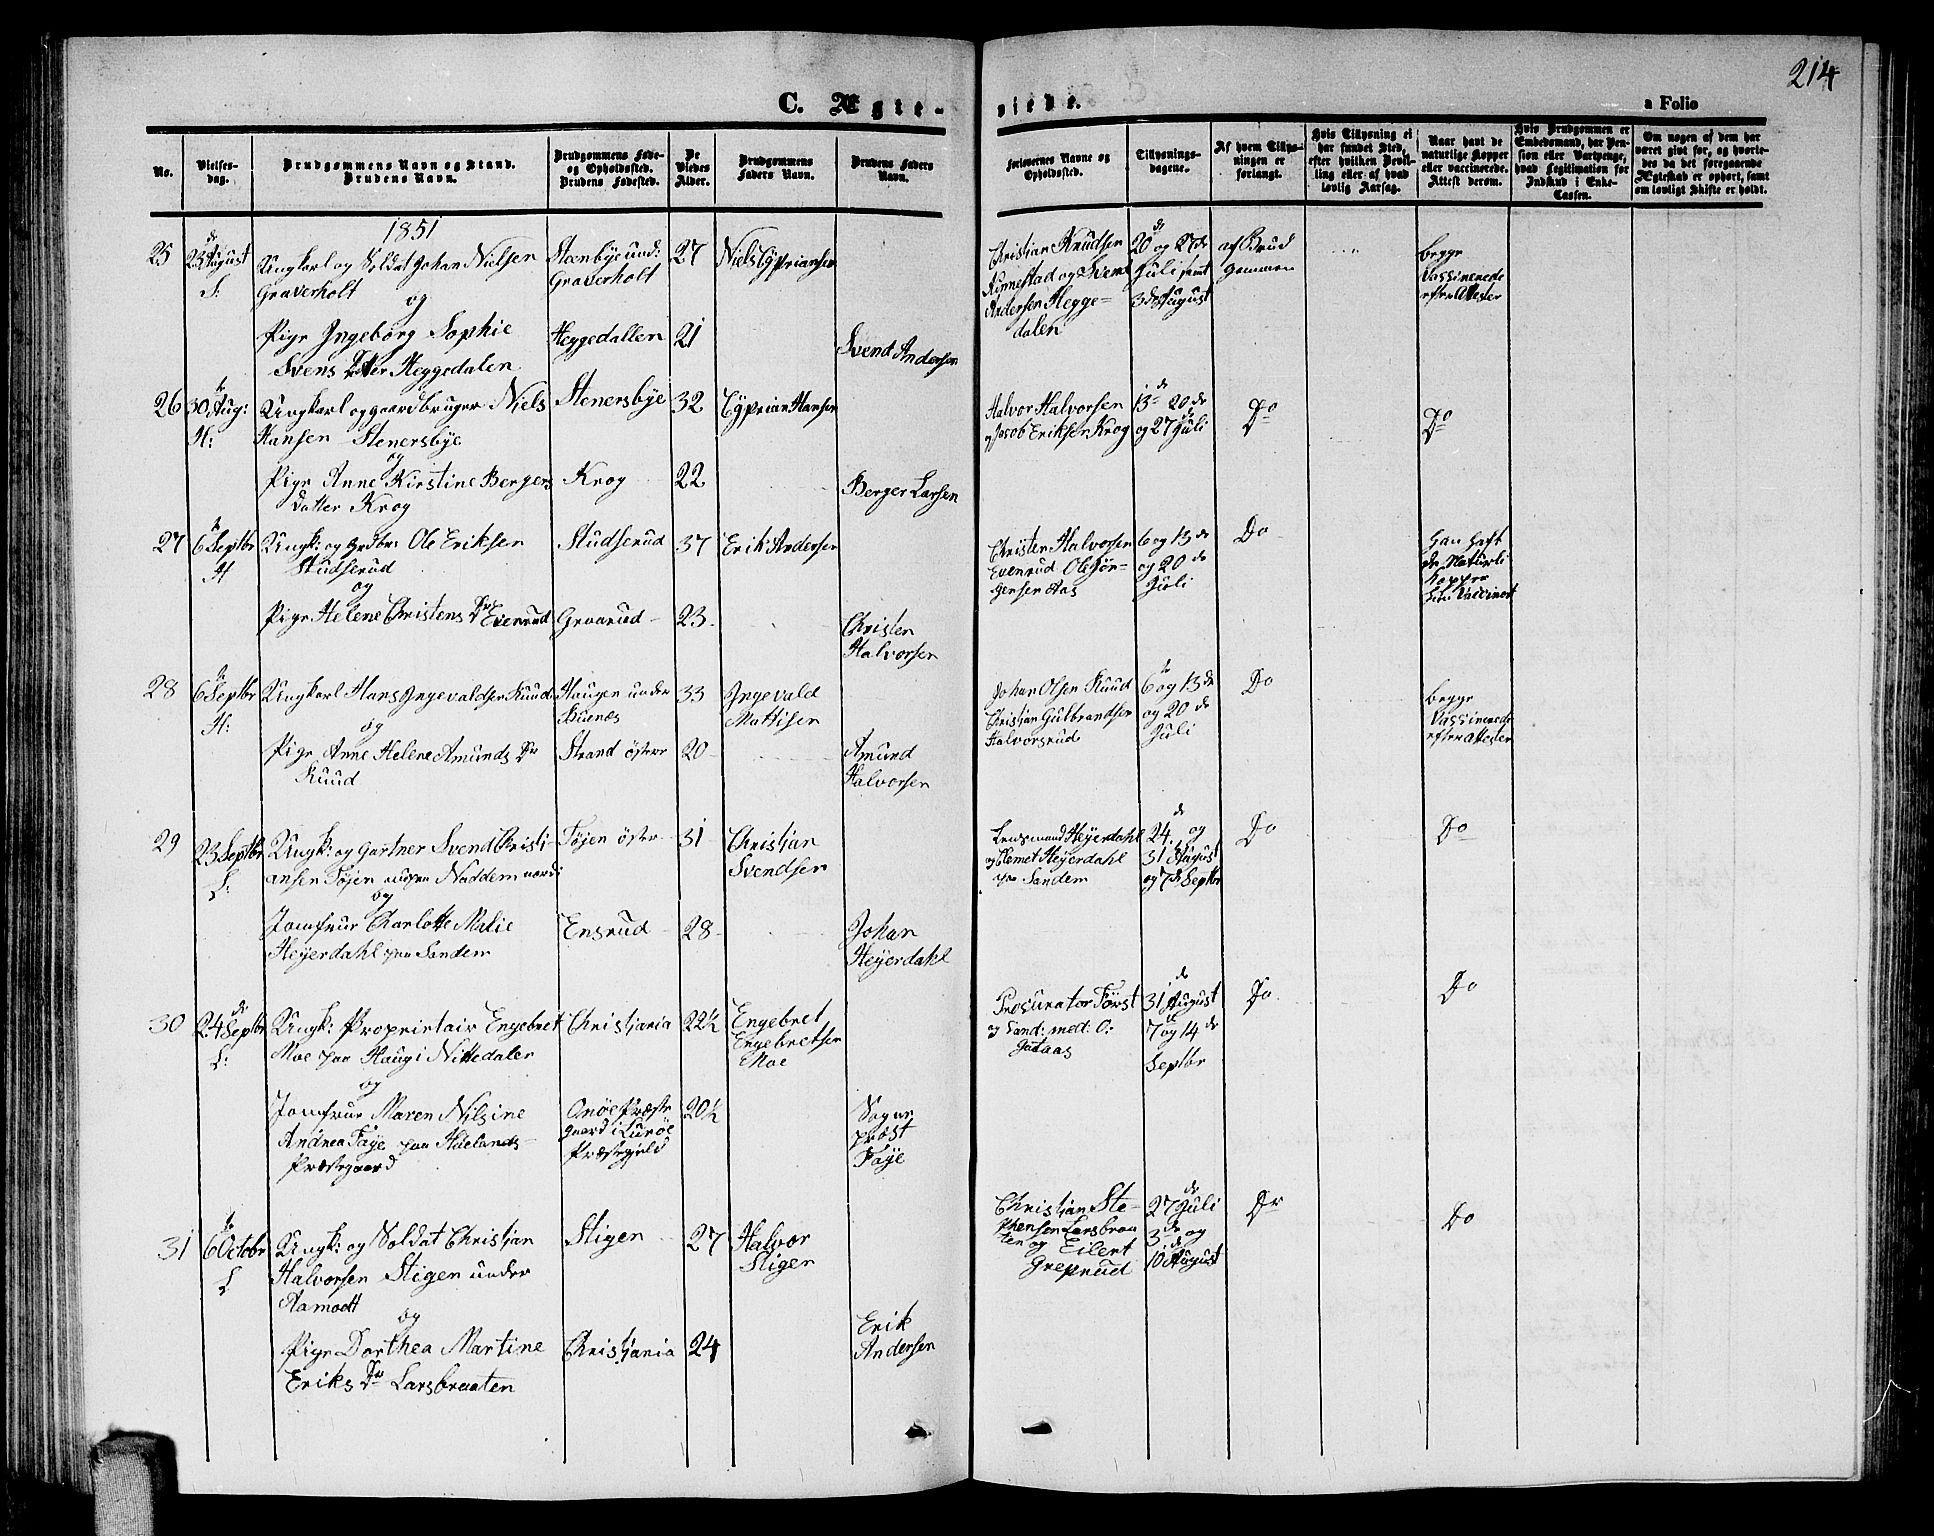 214
C. Ægte-
viede.
a Folio
No.
Vielses-
dag.
Brudgommens Navn og Stand.
Brudens Navn.
Brudgommens Føde-
og Opholdssted.
Brudens Fødested.
De
Viedes
Alder.
Brudgommens
Faders Navn.
Brudens Faders
Navn.
Forlovernes Navne og
Opholdssted.
Tillysnings-
dagene.
Af hvem Tillys-
ningen er
forlangt.
Hvis Tillysning ei
har fundet Sted,
efter hvilken Bevil-
ling eller af hvad
lovlig Aarsag.
Naar havt de
naturlige Kopper
eller vaccinerede.
Attest derom.
Hvis Brudgommen er
Embedsmand, har Pen-
sion eller Vartpenge,
hvad Legitimation for
Indskud i Enke-
Cassen.
Om nogen af dem har
været gift før, og hvorle-
des da det foregaaende
Ægteskab er ophørt, samt
om lovligt Skifte er holdt.
1851
25
23de August
Ungkarl og Soldat Johan Nielsen
Graverholt
og
Pige Ingeborg Sophie
Svens Datter Heggedalen
Stenbye und:
Graverholt
Heggedallen
27
21
Niels Cypriansen
Svend Andersen
Christian Knudsen
Rinnestad og Svend
Andersen Hegge-
dalen
20de og 27de
Juli samt
3de August
af Brud
gommen
begge
Vassinerede
efter Attester
26
30te Aug:
H:
Ungkarl og gaardbruger Niels
Hansen Stenersbye
og
Pige Anne Kirstine Bergers
Datter Krog
Stenersbye
Krog
32
22
Cyprian Hansen
Berger Larsen
Halvor Halvorsen
og Jacob Eriksen Krog
13de 20de
og 27de Juli
Do
Do
27
6te Septbr
H
Ungk: og Grdbr: Ole Eriksen
Studserud
og
Pige Helene Christens Dtr Evenrud
Studserud
Graarud
37
23
Erik Andersen
Christen
Halvorsen
Christen Halvorsen
Evenrud Ole Jør-
gensen Aas
6 og 13de
og 20de
Juli
Do
han haft
de Naturli
Kopper
hun Vassineret
28
6te Septbr
H:
Ungkarl Hans Ingevaldsen Ruud
og
Pige Anne Helene Amunds Dtr
Ruud
Haugen under
Buenes
Strand østre
33
20
Ingevald
Mattisen
Amund
Halvorsen
Johan Olsen Ruud
Christian Gulbrandsen
Halvorsrud
6te og 13de
og 20de
Juli
Do
begge
Vassinerede
efter Attester
29
23 Septbr
L:
Ungk: og Gartner Svend Christi-
ansen Tøjen
og
Jomfrue Charlotte Malie
Heyerdahl paa Sandem
Tøjen østre
Ensrud
31
28
Christian
Svendsen
Johan
Heyerdahl
Lensmand Heyerdahl
og Clemet Heyerdahl
paa Sandem
24de og
31 August
og 7de Septbr
Do
Do
30
24de Septbr
L:
Ungk: Proprietair Engebret
Moe paa Haug i Nittedalen
og
Jomfrue Maren Nilsine
Andrea Faye paa
Præstegaard
Christiania
Onøe Præste
gaard i Lurøe
Præstegjeld
22½
20½
Engebret
Engebretsen
Moe
Sogne
præst
Faye
Procurator Førs
og Cand: med: O:
Gutaas
31de August
7de og 14de
Septbr
Do
Do
31
6te Octobr
L
Ungk: og Soldat Christian
Halvorsen Stigen under
Aamodt
og
Pige Dorthea Martine
Eriks Dtr Larsbraaten
Stigen
Christiania
27
24
Halvor
Stigen
Erik
Andersen
Christian Ste-
phensen Larsbraa
ten og Eilert
Greprud
27de Juli
3de og
10de August
Do
Do